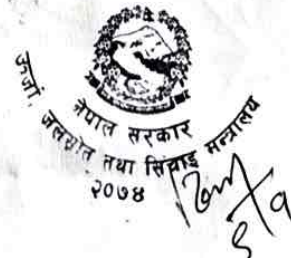 नेपाल सरकार
ऊर्जा, जलस्रोत तथा सिंचाइ मन्त्रालय
२०७४